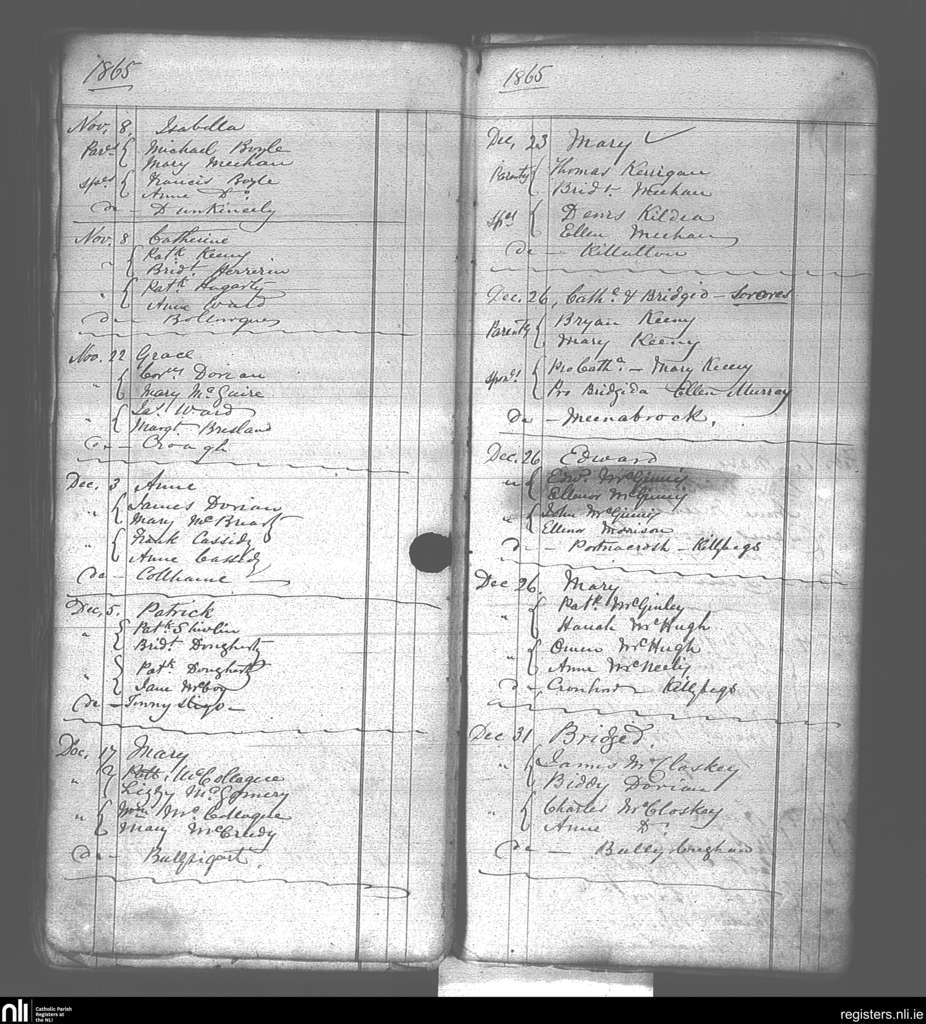 1865
Nov. 8, Isabella
Par.s Michael Boyle
Mary Meehan
Sps.s Francis Boyle
Anne Do
de — Dunkineely
Nov. 8 Catherine
" Patk Keeny
Bridt
" Patk Hagarty
Anne Ward
de —
Nov. 22 Grace
" Corns. Dorian
Mary McGuire
" Jas. Ward
Margt Bresland
de — Croagh
Dec. 3 Anne
" James Dorian
Mary McBrearty
" Frank Cassidy
Anne Cassidy
de —
Dec. 5. Patrick
" Patk Shivlin
Bridt Dougherty
" Patk Dougherty
Jane McCoy
de —
Dec. 17 Mary
" Patk. McCollogue
Lizzy
" Wm. McCollogue
Mary McCredy
de —
1865
Dec, 23 Mary
Parents Thomas Kerrigan
Bridt. Meehan
Sps Denis Kildea
Ellen Meehan
de —
Dec. 26, Cathe. & Bridgid — Sorores
Parents Bryan Keeny
Mary Keeny
Spors. Pro Catha. — Mary Keeny
Pro Bridgida Ellen Murray
de — Meenabrock.
Dec. 26 Edward
" Edwd. McGinnis
Ellenor McGinnis
" John McGinnis
Ellenor Morrison
de — Portnacrosh — Killybegs
Dec 26. Mary
" Patk. McGinley
Hanah McHugh
" Owen McHugh
Anne McNeely
de, Killybegs
Dec 31 Bridged.
" James McCloskey
Biddy Dorian
" Charles McCloskey
Anne Do
de —
nli
Catholic Parish
Registers at
the NLI
registers.nli.ie